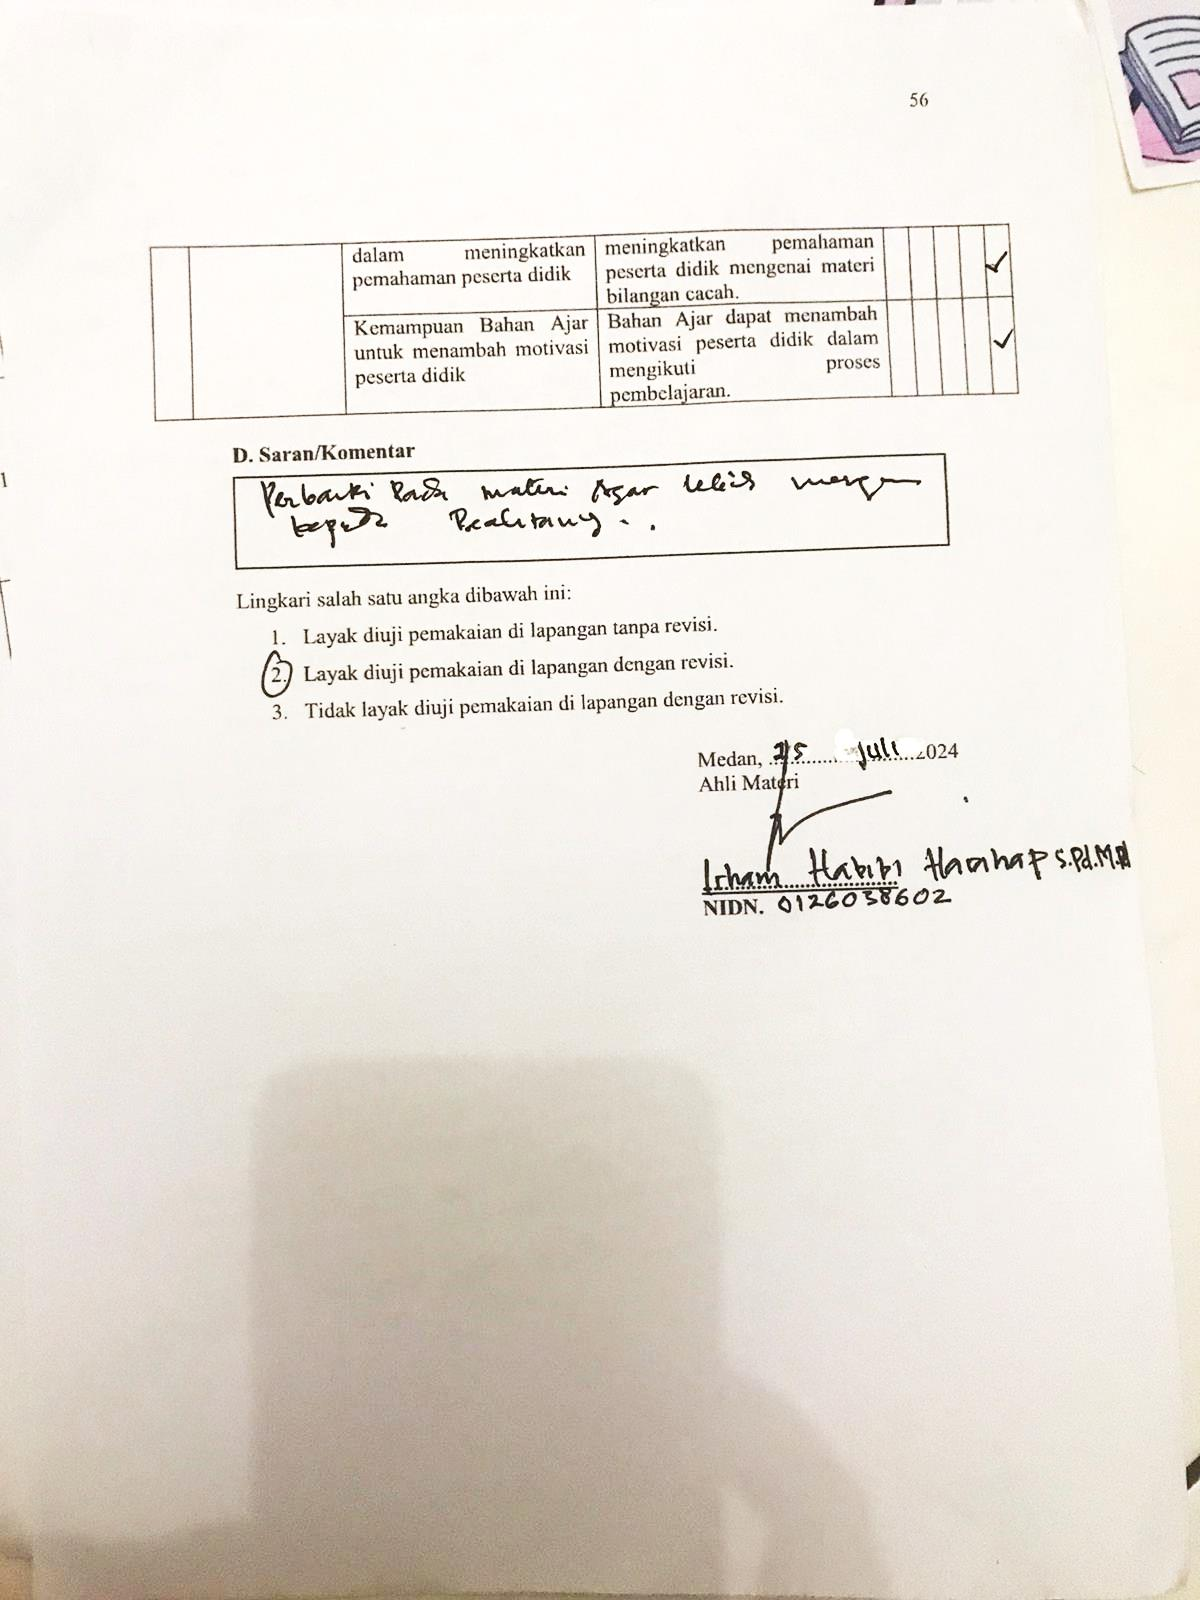 56
dalam meningkatkan
pemahaman peserta didik
meningkatkan pemahaman
peserta didik mengenai materi
bilangan cacah.
Kemampuan Bahan Ajar
untuk menambah motivasi
peserta didik
Bahan Ajar dapat menambah
motivasi peserta didik dalam
mengikuti proses
pembelajaran.
D. Saran/Komentar
Perbaiki Pada materi Agar lebih
kepada
Lingkari salah satu angka dibawah ini:
1. Layak diuji pemakaian di lapangan tanpa revisi.
2. Layak diuji pemakaian di lapangan dengan revisi.
3. Tidak layak diuji pemakaian di lapangan dengan revisi.
Medan, 25 Juli 2024
Ahli Materi
Irham Habibi Harahap S.Pd.M.Pd
NIDN. 0126038602
1